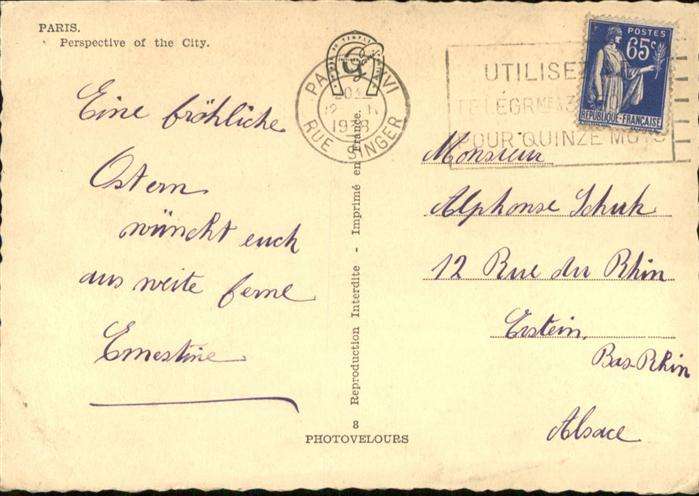 PARIS.
Perspective of the City.
Eine fröhliche
Ostern
wünscht euch
aus weite ferne
Ernestine
8 Reproduction Interdite - Imprimé en France.
PHOTOVELOURS
PARIS XVI
1938
RUE SINGER
UTILISEZ
POUR QUINZE MOTS
POSTES
65c
REPUBLIQUE-FRANÇAISE
Monsieur
Alphonse Schuh
12 Rue du Rhin
Erstein,
Bas-Rhin
Alsace